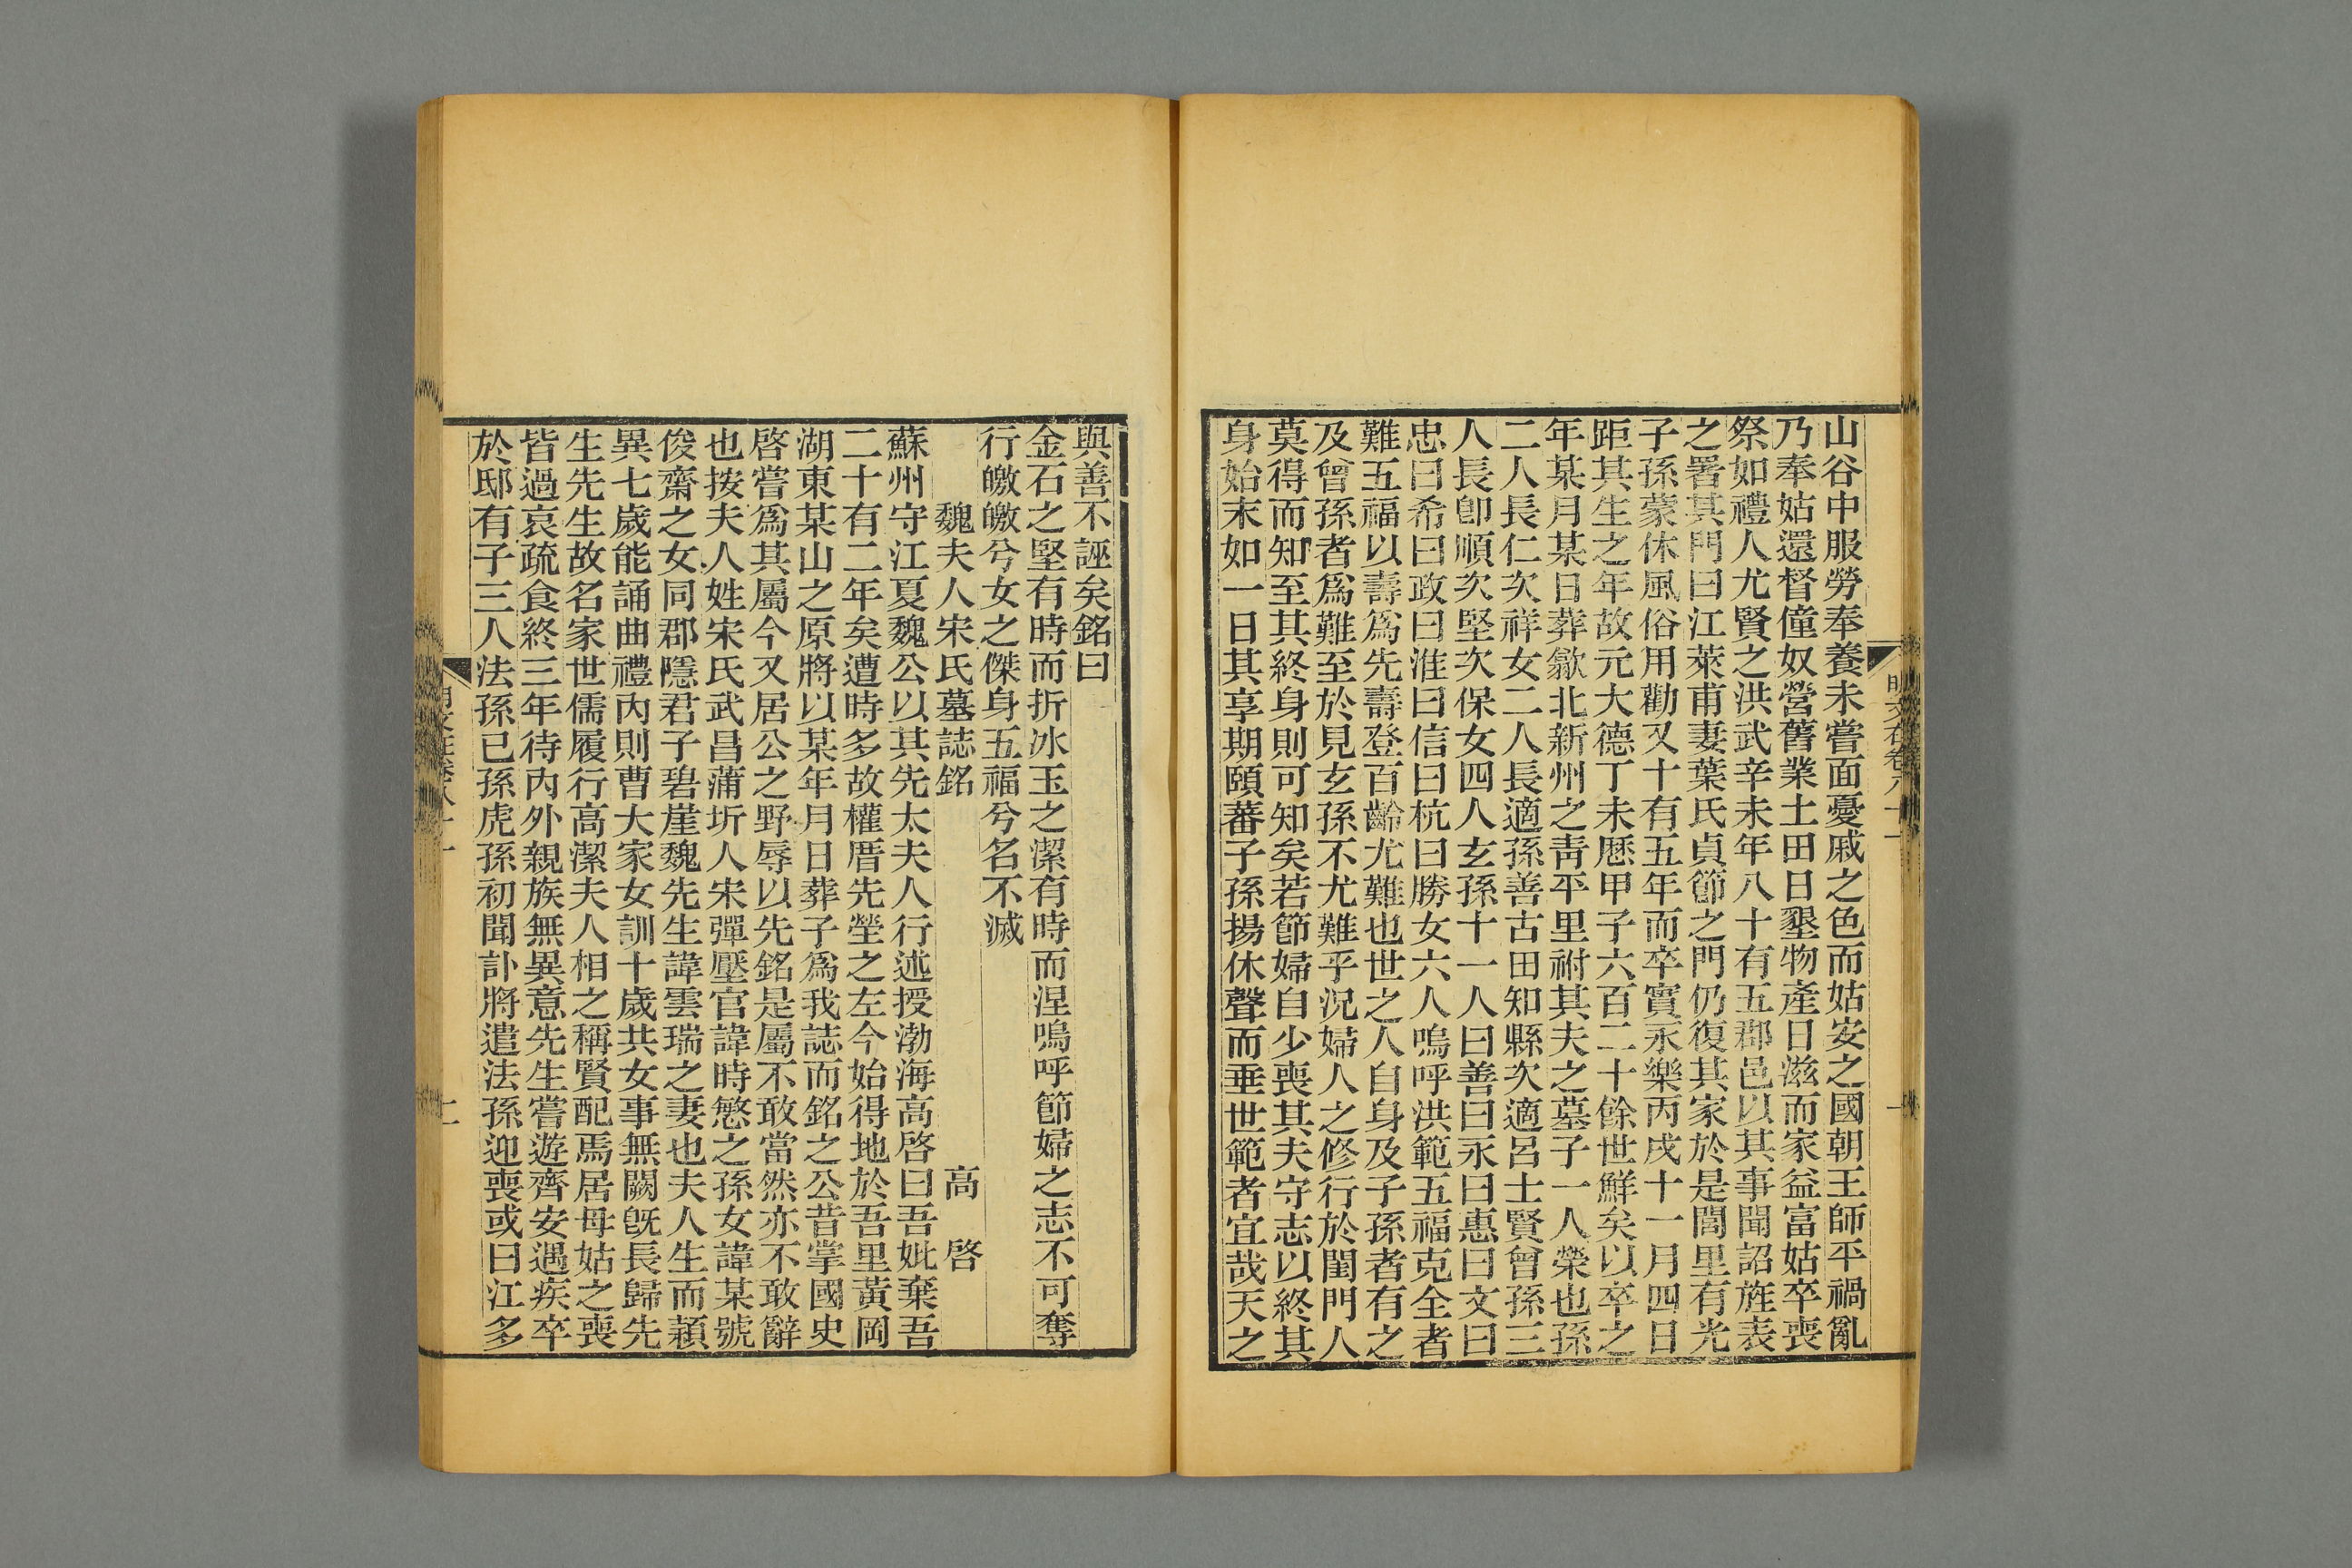 山谷中服勞奉養未嘗面憂戚之色而姑安之國朝王師平禍亂
乃奉姑還督僮奴營舊業土田日墾物產日滋而家益富姑卒喪
祭如禮人尤賢之洪武辛未年八十有五郡邑以其事聞詔旌表
之署其門曰江萊甫妻葉氏貞節之門仍復其家於是閭里有光
子孫蒙休風俗用勸又十有五年而卒實永樂丙戌十一月四日
距其生之年故元大德丁未歷甲子六百二十餘世鮮矣以卒之
年某月某日葬歙北新州之靑平里祔其夫之墓子一人榮也孫
二人長仁次祥女二人長適孫善古田知縣次適呂士賢曾孫三
人長卽順次堅次保女四人玄孫十一人曰善曰永曰惠曰文曰
忠曰希曰政曰淮曰信曰杭曰勝女六人嗚呼洪範五福克全者
難五福以壽爲先壽登百齡尤難也世之人自身及子孫者有之
及曾孫者爲難至於見玄孫不尤難乎況婦人之修行於閨門人
莫得而知至其終身則可知矣若節婦自少喪其夫守志以終其
身始末如一日其享期頤蕃子孫揚休聲而垂世範者宜哉天之
與善不誣矣銘曰
金石之堅有時而折冰玉之潔有時而涅嗚呼節婦之志不可奪
行皦皦兮女之傑身五福兮名不滅
魏夫人宋氏墓誌銘　高啓
蘇州守江夏魏公以其先太夫人行述授渤海高啓曰吾妣棄吾
二十有二年矣遭時多故權厝先塋之左今始得地於吾里黃岡
湖東某山之原將以某年月日葬子爲我誌而銘之公昔掌國史
啓嘗爲其屬今又居公之野辱以先銘是屬不敢當然亦不敢辭
也按夫人姓宋氏武昌蒲圻人宋彈壓官諱時慜之孫女諱某號
俊齋之女同郡隱君子碧崖魏先生諱雲瑞之妻也夫人生而穎
異七歲能誦曲禮內則曹大家女訓十歲共女事無闕旣長歸先
生先生故名家世儒履行高潔夫人相之稱賢配焉居母姑之喪
皆過哀疏食終三年待內外親族無異意先生嘗遊齊安遇疾卒
於邸有子三人法孫已孫虎孫初聞訃將遣法孫迎喪或曰江多